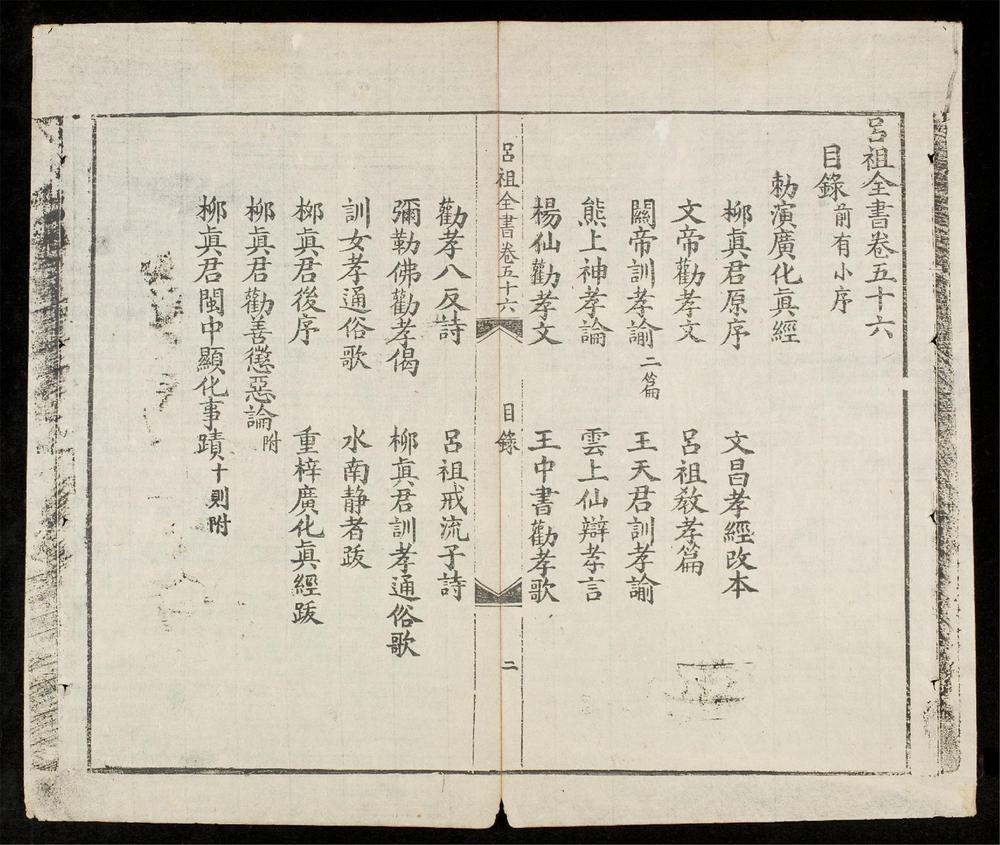 呂祖全書卷五十六
目錄前有小序
勅演廣化眞經
柳眞君原序　文昌孝經改本
文帝勸孝文　呂祖敎孝篇
關帝訓孝諭二篇　王天君訓孝諭
熊上神孝論　雲上仙辯孝言
楊仙勸孝文　王中書勸孝歌
呂祖全書卷五十六　目錄　二
勸孝八反詩　呂祖戒流子詩
彌勒佛勸孝偈　柳眞君訓孝通俗歌
訓女孝通俗歌　水南静者跋
柳眞君後序　重梓廣化眞經跋
柳眞君勸善懲惡論附
柳眞君閩中顯化事蹟十則附